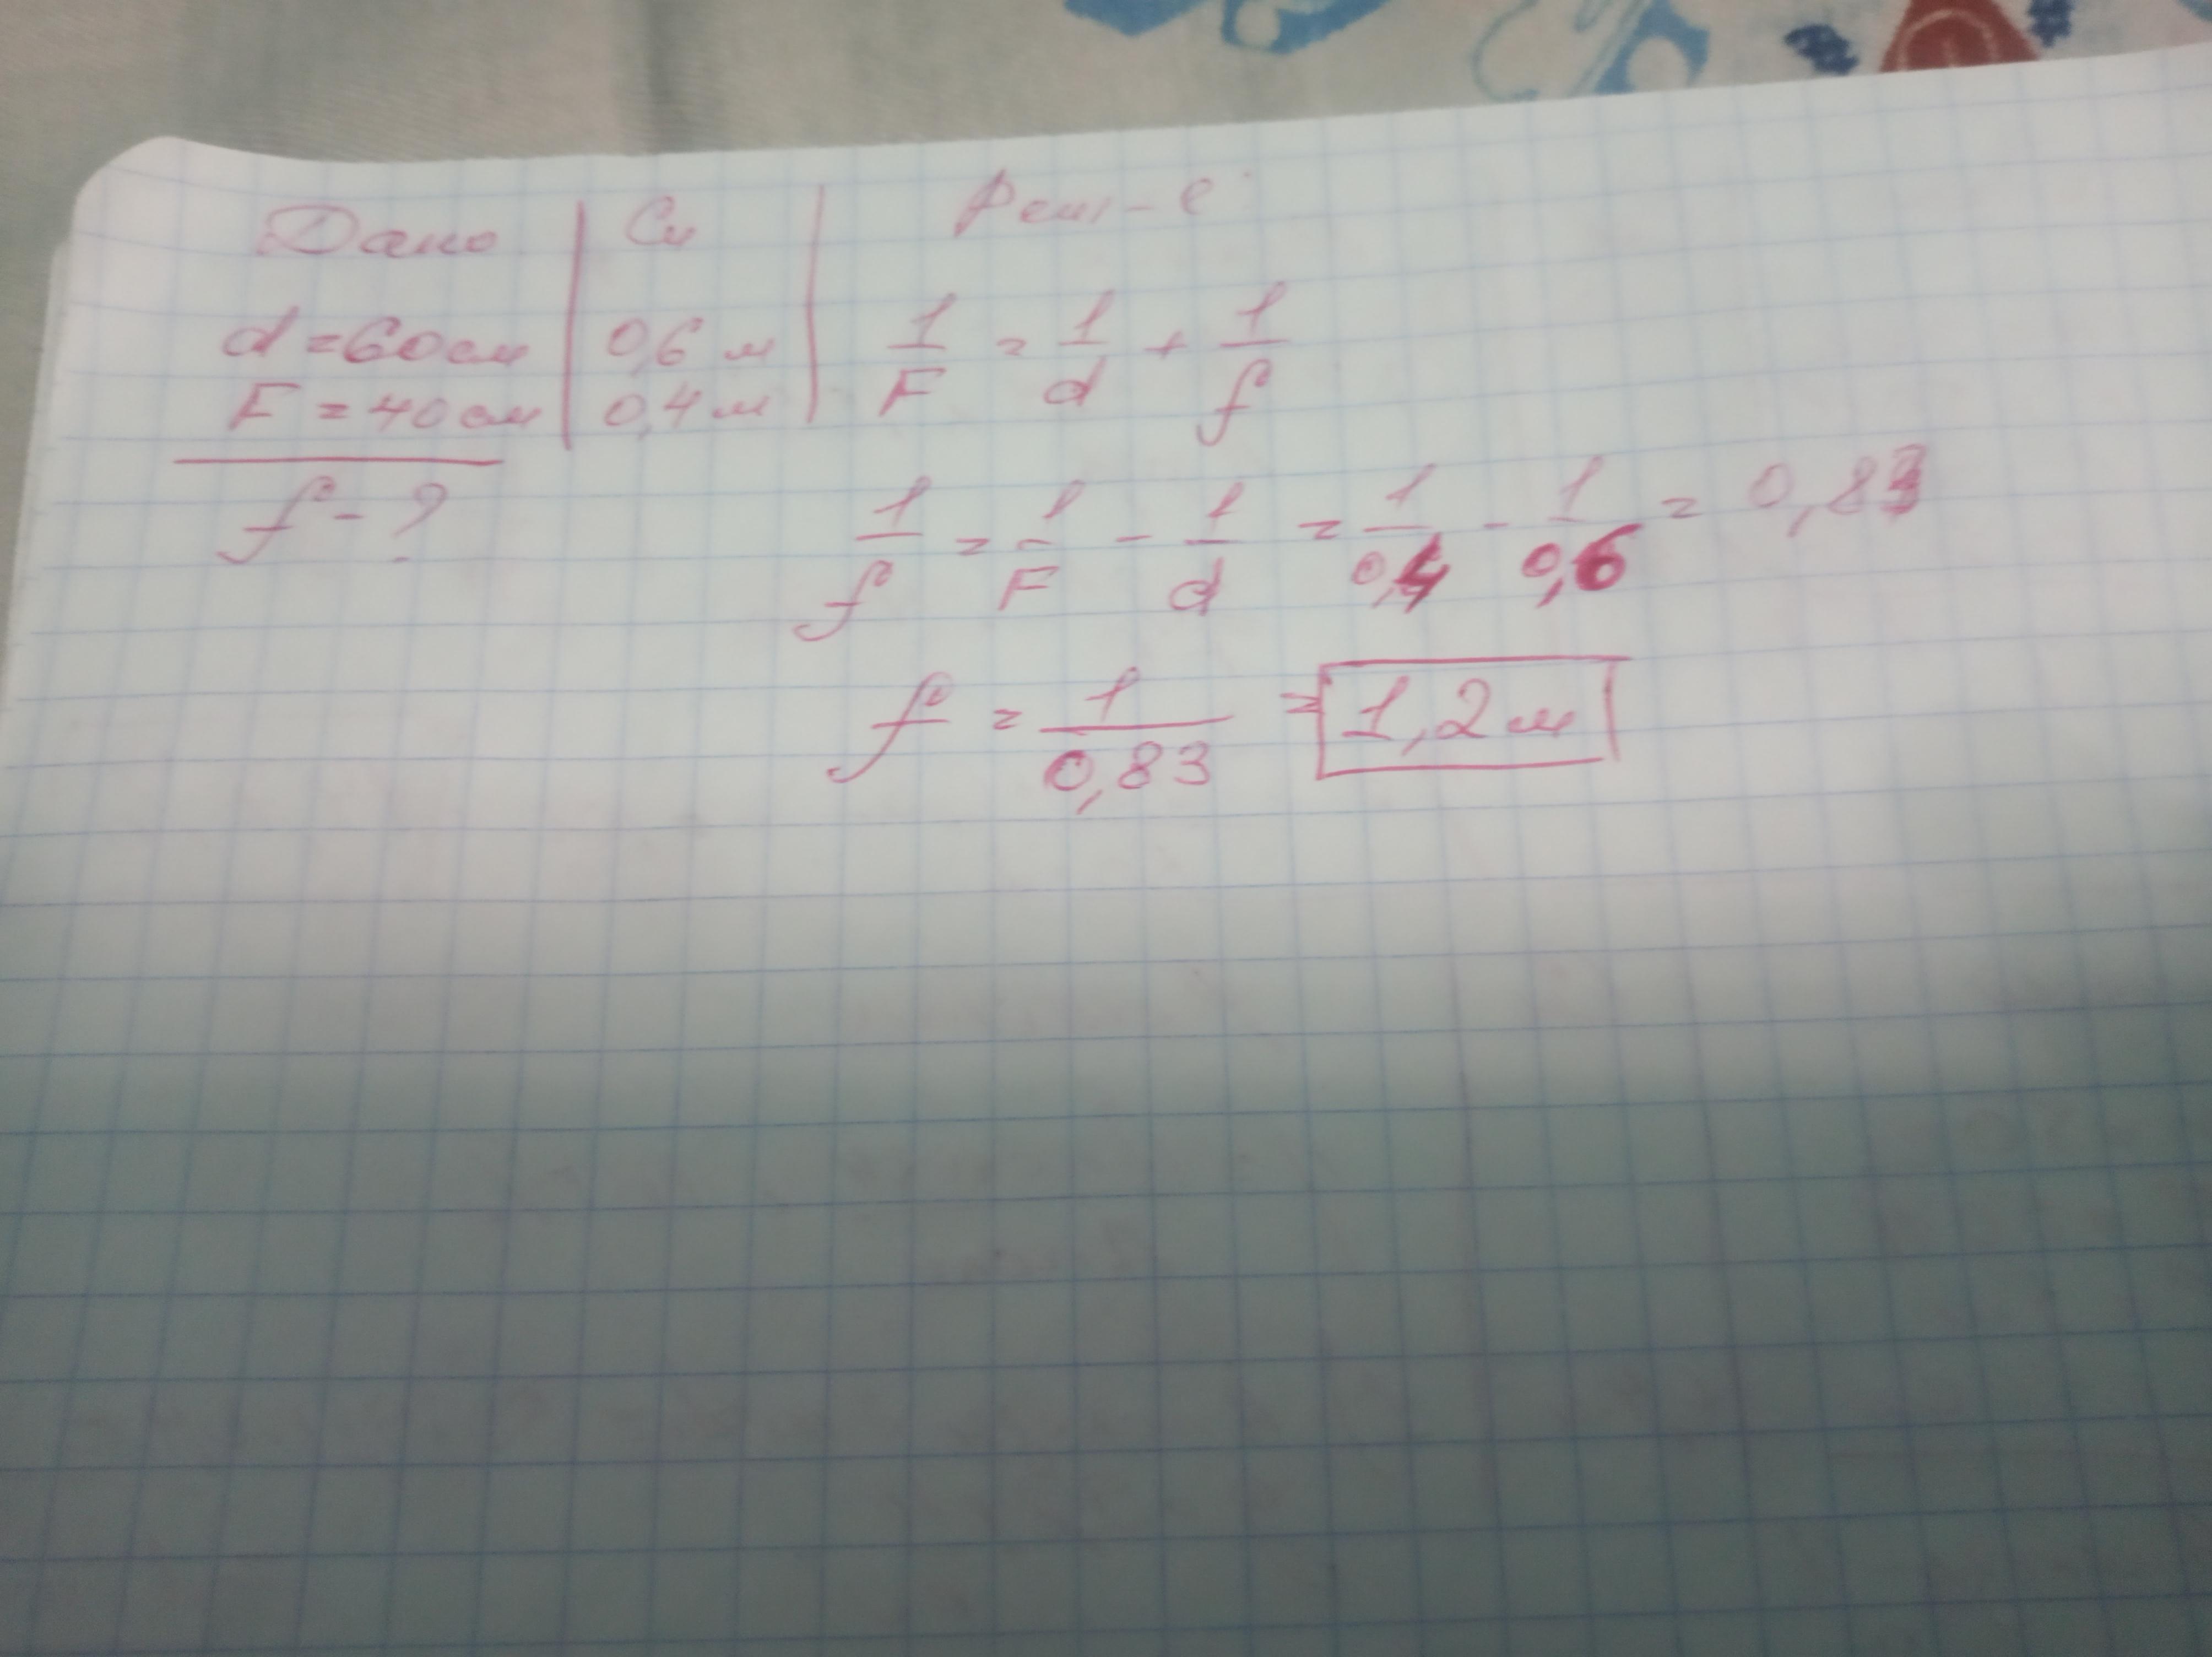 Дано | Си | Реш-е
d = 60 см | 0,6 м | 1/F = 1/d + 1/f
F = 40 см | 0,4 м
f - ?
1/f = 1/F - 1/d = 1/0,4 - 1/0,6 = 0,83
f = 1/0,83 = 1,2 м